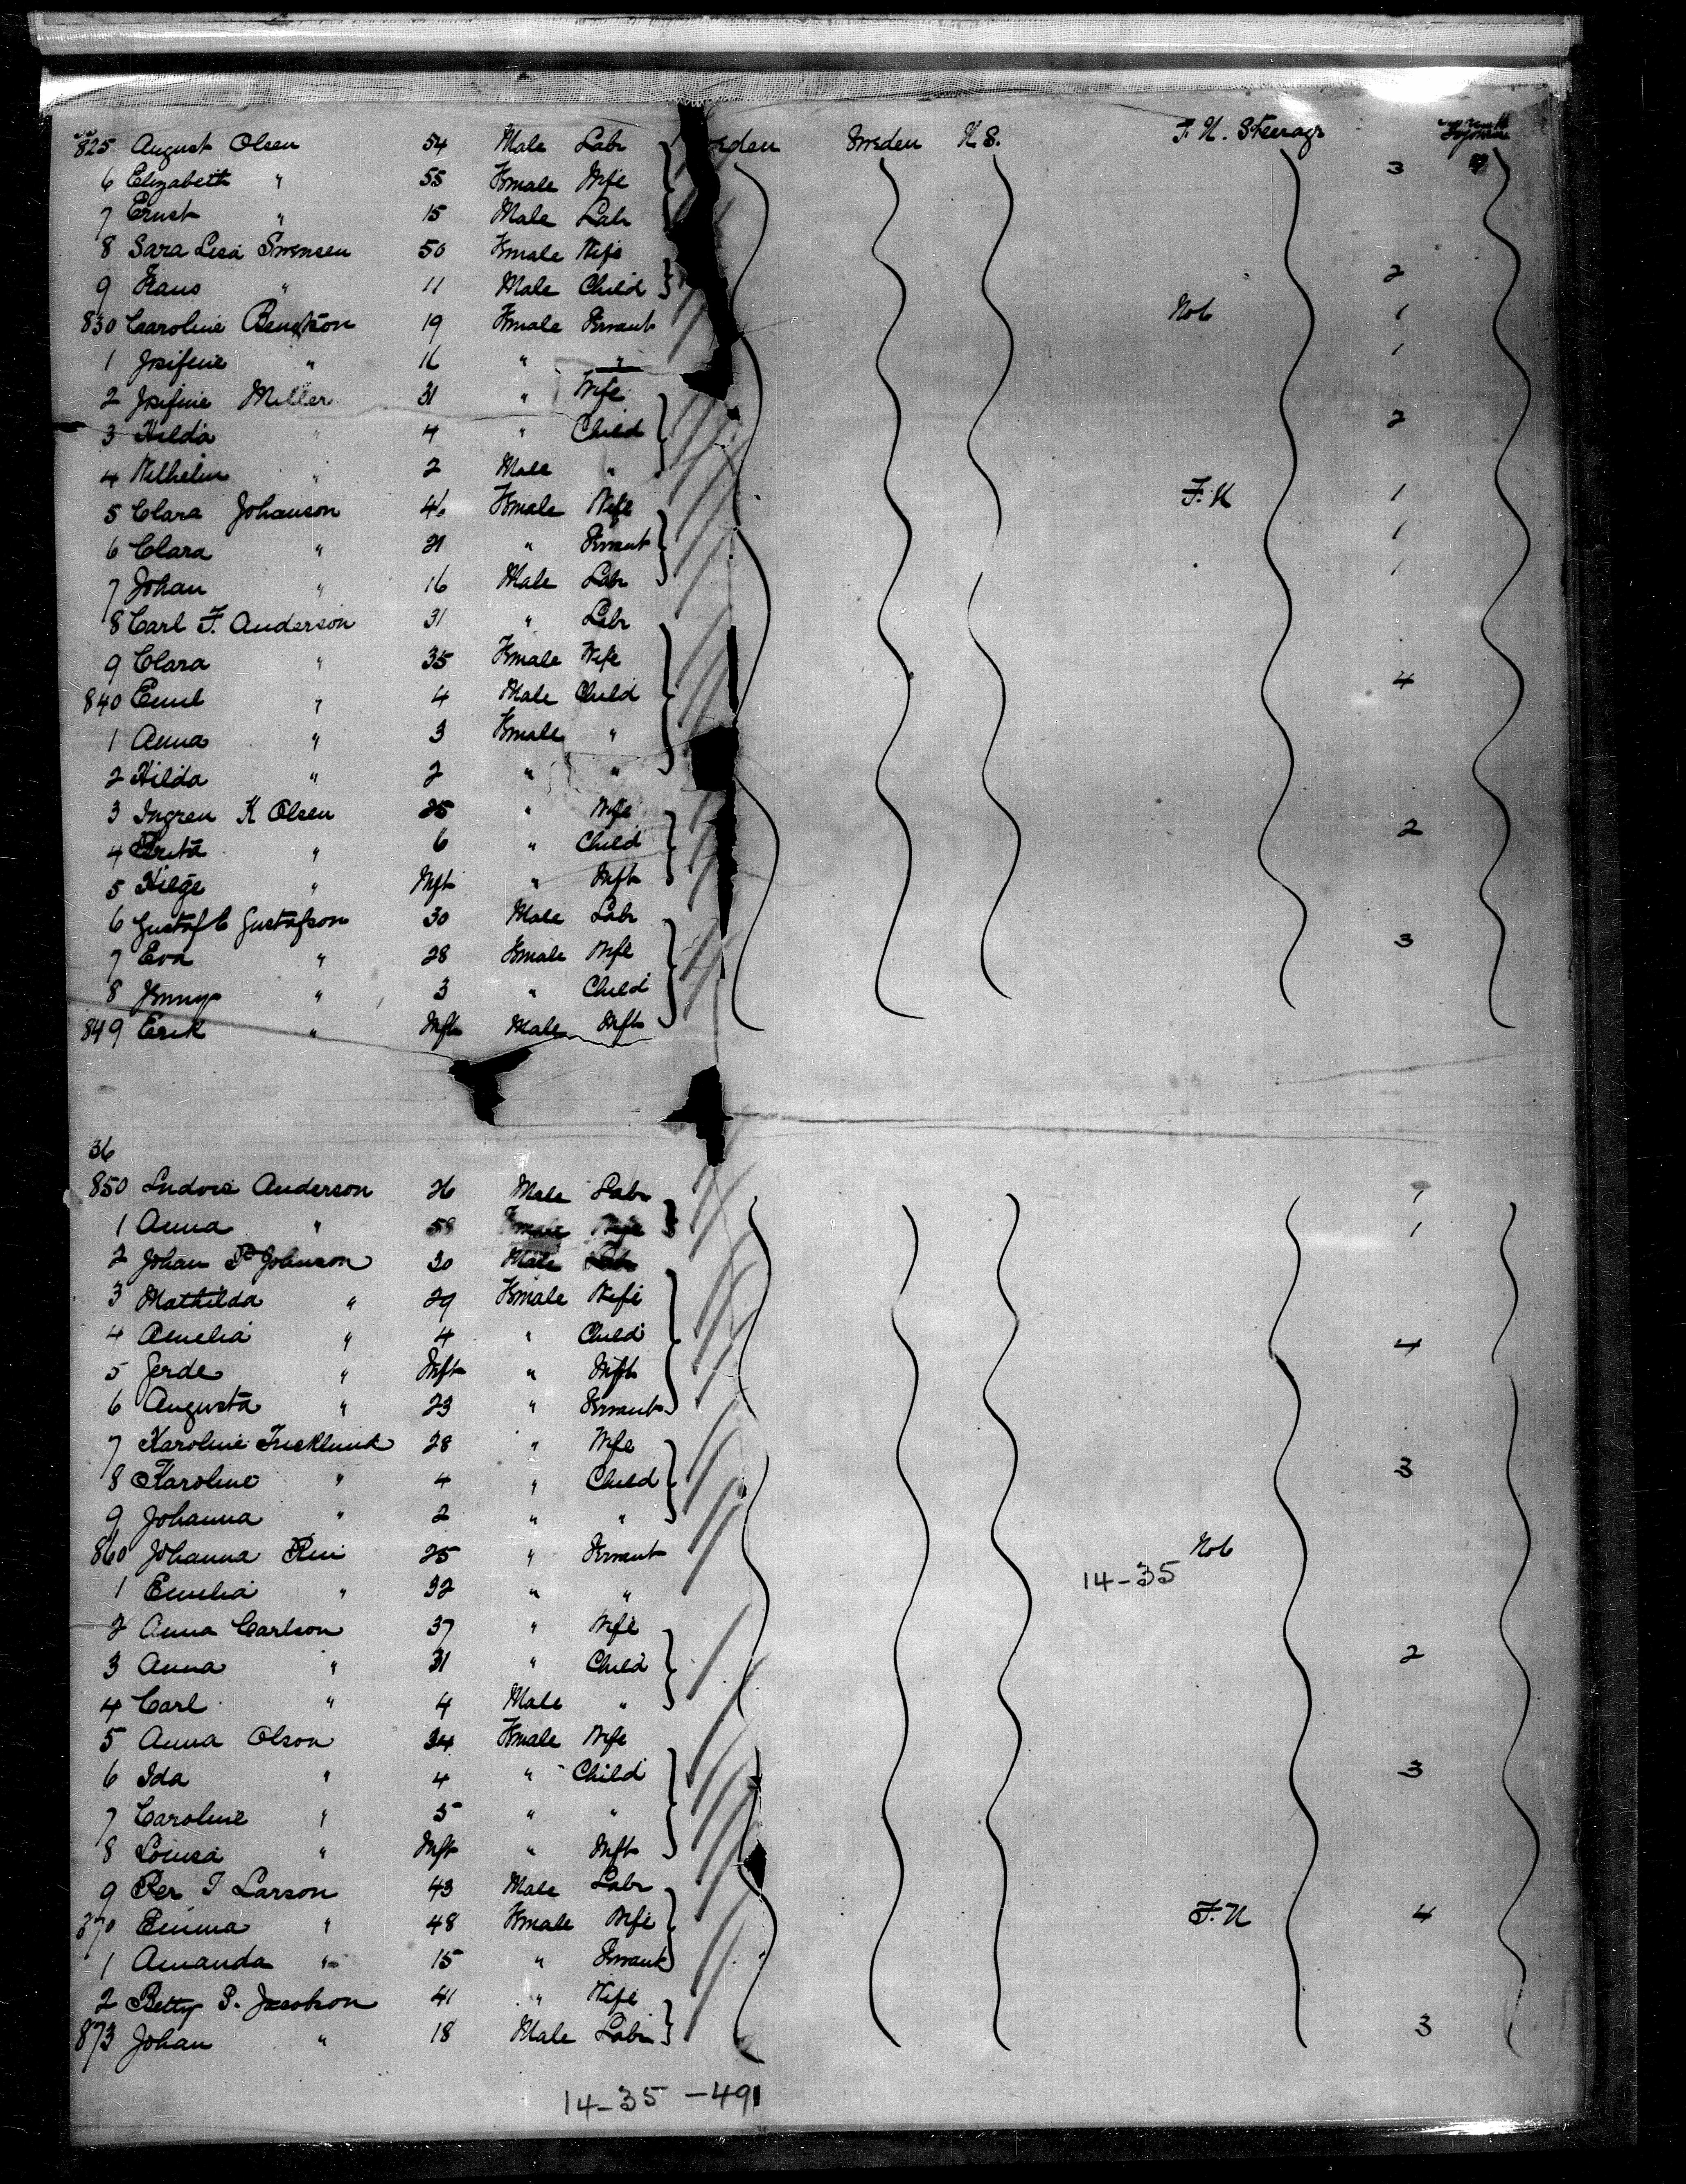 825 August Olsen 54 Male Labr eden Sweden U.S. F.H. Steerage
6 Elizabeth " 55 Female Wife 3
7 Ernst " 15 Male Labr
8 Sara Lisa Swensen 50 Female Wife 2
9 Hans " 11 Male Child
830 Caroline Bengtson 19 Female Servant Hob 1
1 Josifine " 16 " " 1
2 Josifine Miller 31 " Wife
3 Hilda " 4 " Child 2
4 Wilhelm " 2 Male "
5 Clara Johanson 46 Female Wife F.H 1
6 Clara " 21 " Servant 1
7 Johan " 16 Male Labr 1
8 Carl F. Anderson 31 " Labr
9 Clara " 35 Female Wife
840 Emil " 4 Male Child 4
1 Anna " 3 Female "
2 Hilda " 2 " "
3 Ingren K Olsen 25 " Wife
4 Brita " 6 " Child 2
5 Helge " Inft " Inft
6 Gustaf C Gustafson 30 Male Labr
7 Eva " 28 Female Wife 3
8 Jenny " 3 " Child
849 Erik " Inft Male Inft
36
850 Ludvis Anderson 26 Male Labr 1
1 Anna " 58 Female Wife 1
2 Johan P Johnson 30 Male Labr
3 Mathilda " 29 Female Wife
4 Amelia " 4 " Child 4
5 Gerde " Inft " Inft
6 Augusta " 23 " Servant
7 Karoline 28 " Wife
8 Karoline " 4 " Child 3
9 Johanna " 2 " "
860 Johanna 25 " Servant Hob
14-35
1 Emelia " 32 " "
2 Anna Carlson 37 " Wife
3 Anna " 31 " Child 2
4 Carl " 4 Male "
5 Anna Olson 34 Female Wife
6 Ida " 4 " Child 3
7 Caroline " 3 " "
8 Louisa " Inft " Inft
9 Per J Larson 43 Male Labr
870 Emma " 48 Female Wife F.H 4
1 Amanda " 15 " Servant
2 Betty P. Jacobson 41 " Wife
873 Johan " 18 Male Labr 3
14-35-491